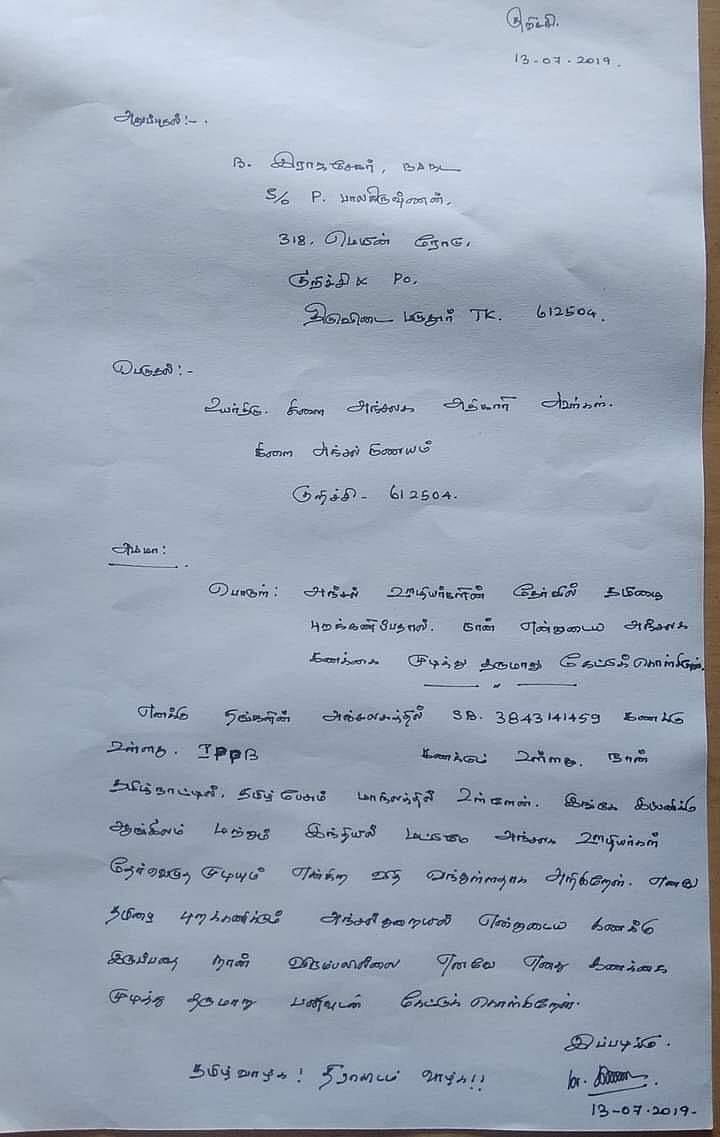 குறிச்சி.
13-07-2019.
அனுப்புதல்:-.
B. இராஜசேகர்,
S/o P. பாலகிருஷ்ணன்,
318, மெயின் ரோடு,
குறிச்சி & Po,
திருவிடை மருதூர் TK. 612504.
பெருதல்:-
உயர்திரு. கிளை அஞ்சலக அதிகாரி அவர்கள்.
கிளை அஞ்சல் நிலையம்
குறிச்சி - 612504.
அம்மா:
பொருள்: அஞ்சல் ஊழியர்களின் தேர்வில் தமிழை
புறக்கணிப்பதால். நான் என்னுடைய அஞ்சலக
கணக்கை முடித்து தருமாறு கேட்டுக் கொள்கிறேன்.
எனக்கு தங்களின் அஞ்சலகத்தில் SB. 3843141459 கணக்கு
உள்ளது. IPPB கணக்கும் உள்ளது. நான்
தமிழ்நாட்டில், தமிழ் பேசும் மாநிலத்தில் உள்ளேன். இங்கே
ஆங்கிலம் மற்றும் இந்தியில் மட்டுமே அஞ்சலக ஊழியர்கள்
தேர்வெழுத முடியும் என்கிற விதி வந்துள்ளதாக அறிகிறேன். எனவே
தமிழை புறக்கணிக்கும் அஞ்சல்துறையில் என்னுடைய கணக்கு
இருப்பதை நான் விரும்பவில்லை எனவே எனது கணக்கை
முடித்து தருமாறு பணிவுடன் கேட்டுக் கொள்கிறேன்.
இப்படிக்கு.
தமிழ் வாழ்க! திராவிடம் வாழ்க!!
13-07-2019-